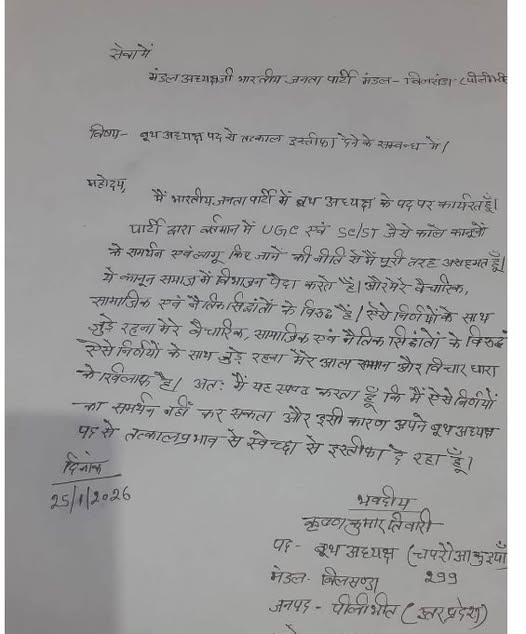 सेवा में
मंडल अध्यक्ष जी भारतीय जनता पार्टी मंडल - बिलसंडा (पीलीभीत
विषय - बूथ अध्यक्ष पद से तत्काल इस्तीफा देने के सम्बन्ध में।
महोदय,
मैं भारतीय जनता पार्टी में बूथ अध्यक्ष के पद पर कार्यरत हूँ।
पार्टी द्वारा वर्तमान में UGC एवं SC/ST जैसे काले कानूनों
के समर्थन एवं लागू किए जानें की नीति से मैं पूरी तरह असहमत हूँ।
ये कानून समाज में विभाजन पैदा करते हैं। और मेरे वैचारिक,
सामाजिक एवं नैतिक सिद्धांतों के विरुद्ध हैं। ऐसे निर्णयों के साथ
जुड़े रहना मेरे वैचारिक, सामाजिक एवं नैतिक सिद्धांतों के विरुद्ध
ऐसे निर्णयों के साथ जुड़े रहना मेरे आत्म सम्मान और विचार धारा
के खिलाफ है। अतः मैं यह स्पष्ट करता हूँ कि मैं ऐसे निर्णयों
का समर्थन नहीं कर सकता और इसी कारण अपने बूथ अध्यक्ष
पद से तत्काल प्रभाव से स्वेच्छा से इस्तीफा दे रहा हूँ।
दिनांक
25/1/2026
भवदीय
कृष्ण कुमार तिवारी
पद - बूथ अध्यक्ष (चपरौआ कुइयाँ
मंडल - बिलसण्डा 299
जनपद - पीलीभीत (उत्तर प्रदेश)